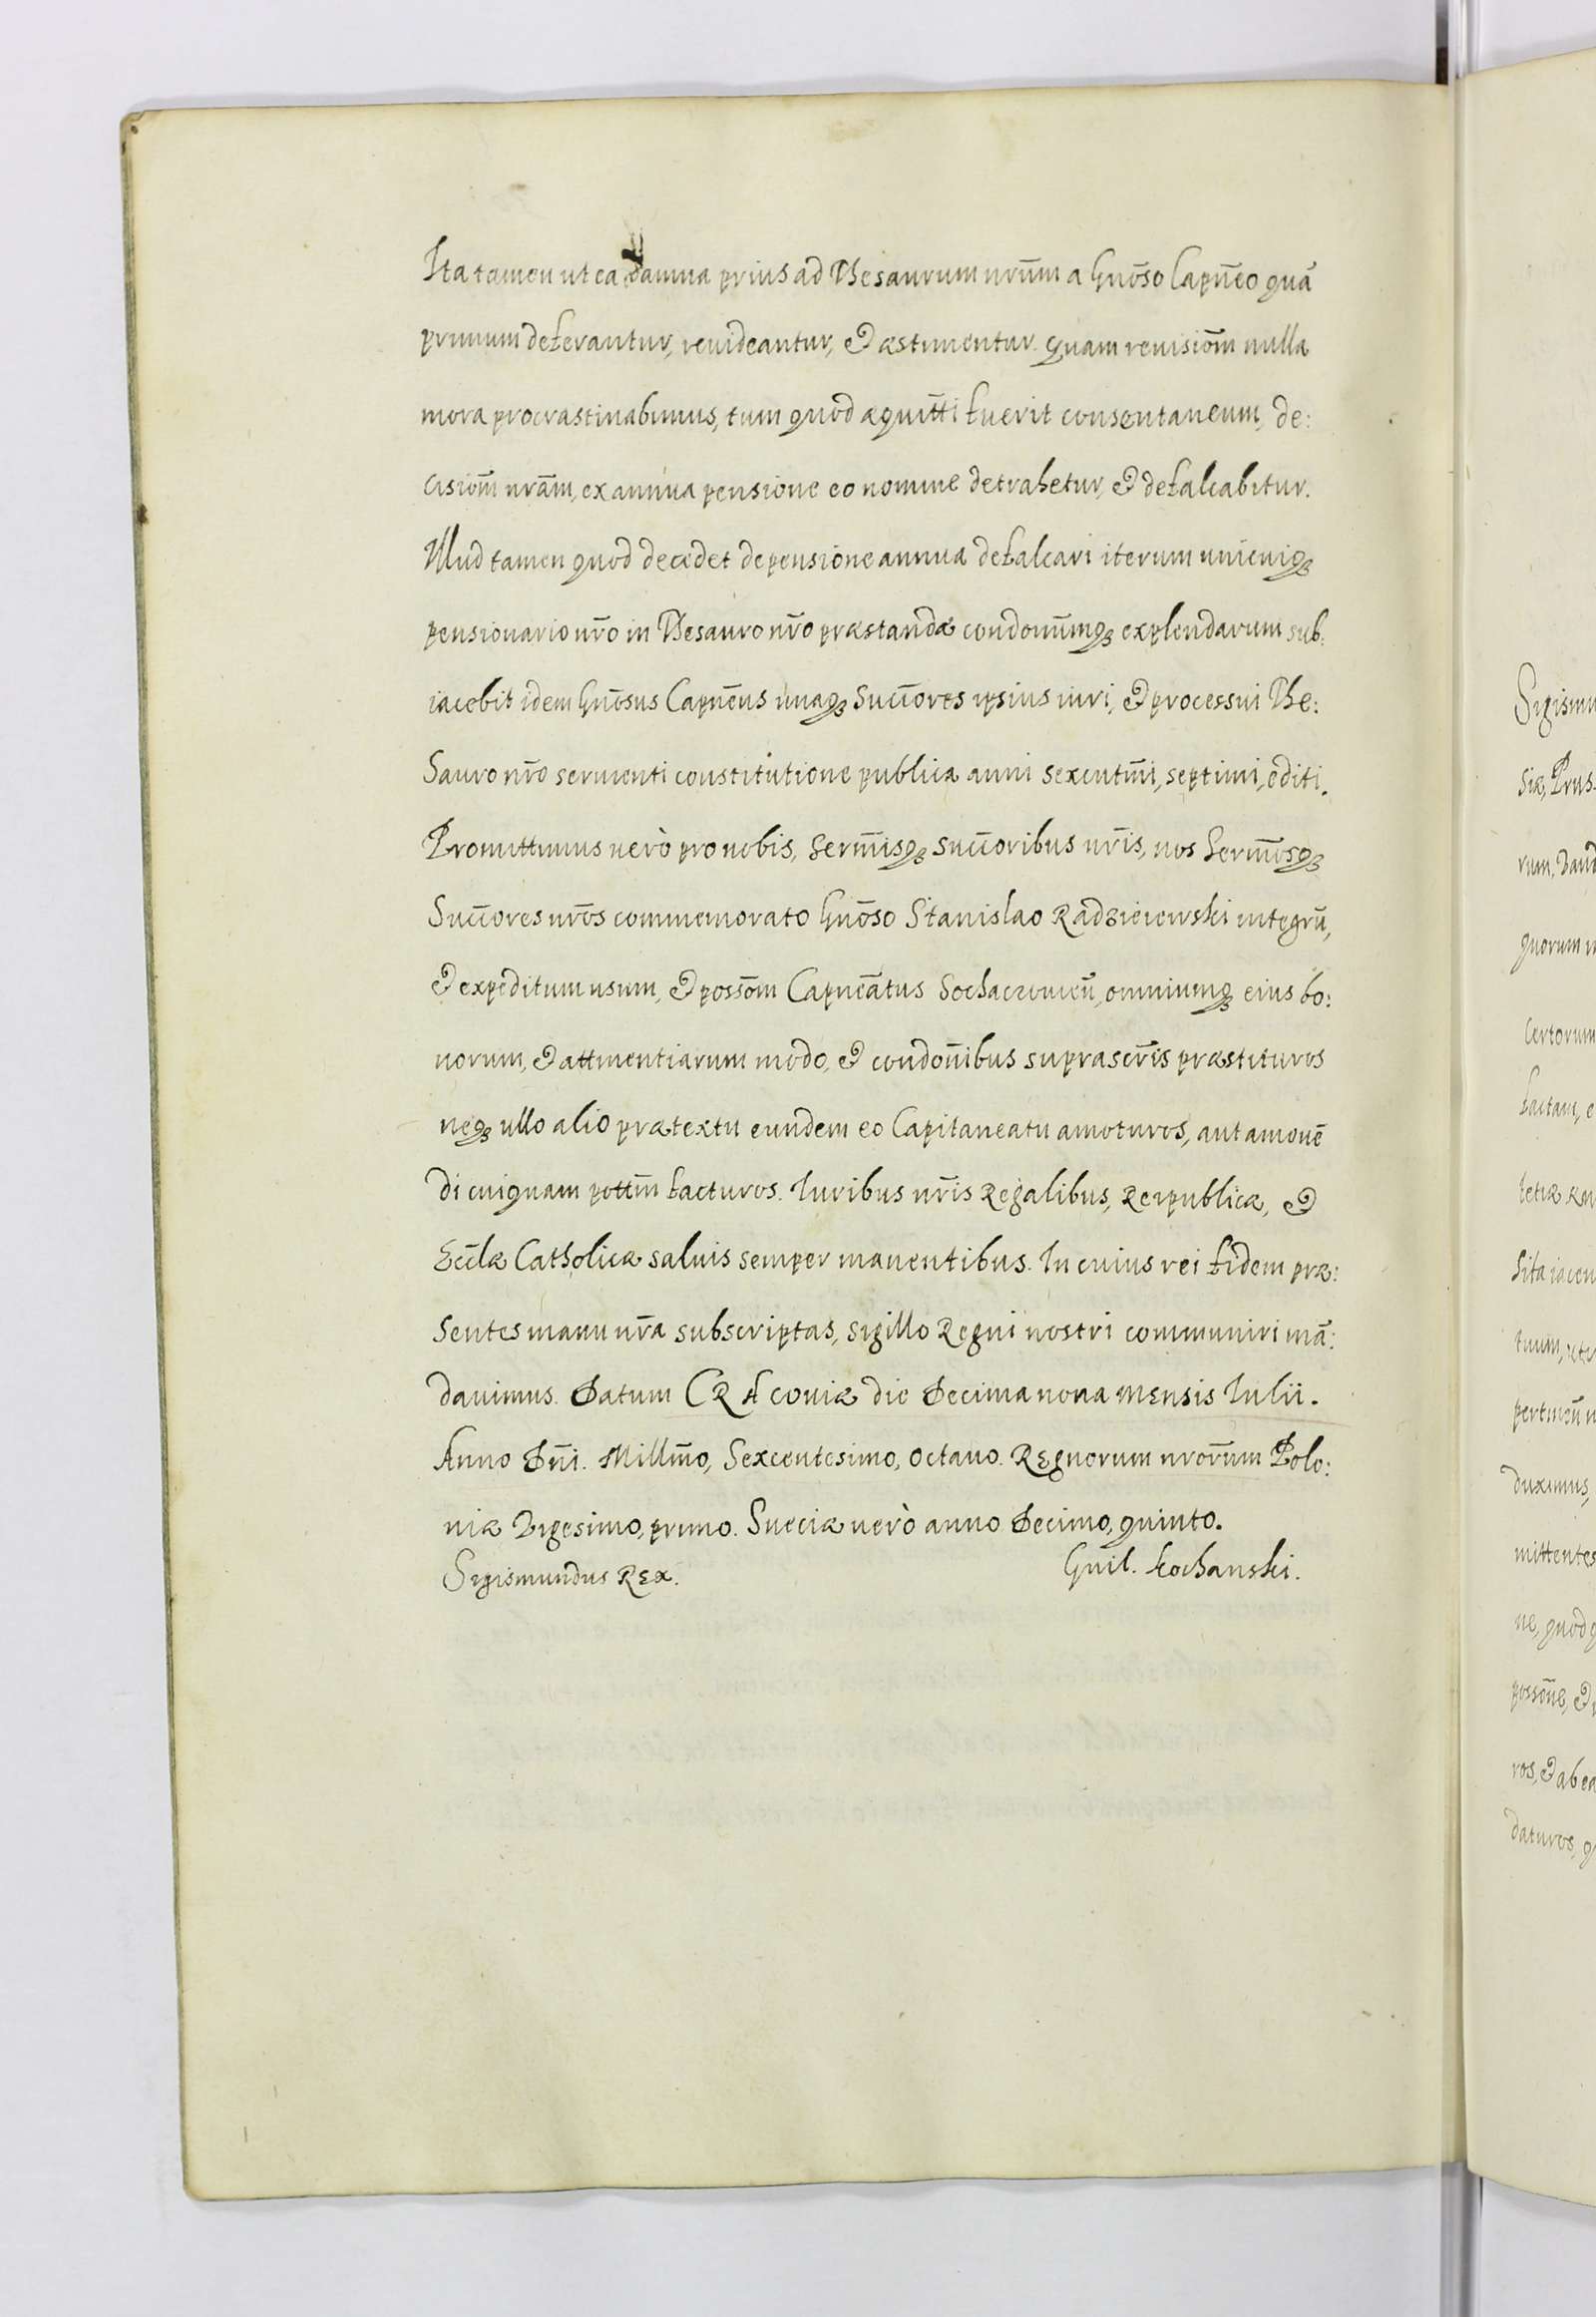 Ita tamen ut ea damna prius ad Thesaurum nrūm a Gnōso Capnēo quā
primum deferantur, reuideantur, & æstimentur. Quam reuisiōm nulla
mora procrastinabimus, tum quod æquitti fuerit consentaneum, de:
cisiōm nrām, ex annua pensione eo nomine detrahetur, & defalcabitur.
Illud tamen quod decedet de pensione annua defalcari iterum unicuiq3
pensionario nrō in Thesauro nrō præstandæ condonūmq3 explendarum sub:
iacebit idem Gnōsus Capnēus unaq3 Succōres ipsius iuri, & processui The:
Sauro nrō seruienti constitutione publica anni sexcentm̄i, septimi, editi.
Promittimus uerò pro nobis, Serm̄isq3 succōribus nrīs, nos Serm̄osq3
Succōres nrōs commemorato Gnōso Stanislao Radzieiewski integrū,
& expeditum usum, & possōm Capneātus Sochaczouien̄, omniumq3 eius bo:
norum, & attinentiarum modo, & condon̄ibus suprascrīs præstituros
neq3 ullo alio prætextu eundem eo Capitaneatu amoturos, aut amouē
di cuiquam pottm̄ facturos. Iuribus nrīs Regalibus, Reipublicæ, &
Eccl̄æ Catholicæ saluis semper manentibus. In cuius rei fidem præ:
Sentes manu nrā subscriptas, sigillo Regni nostri communiri mā:
dauimus. Datum CRAcouiæ die Decima nona Mensis Iulii.
Anno Dn̄i. Millm̄o, Sexcentesimo, Octauo. Regnorum nrorūm Polo:
niæ Vigesimo, primo. Sueciæ uerò anno Decimo, quinto.
Sigismundus Rex. Guil. Kochanski.
Sigismu
siæ, Prus
rum. Dand
quorum
certorum
factam, e
letiæ
Sita iacen
tuum,
duximus,
mittentes
ne, quod q
possōne, &
ros, & ab ea
daturos, q